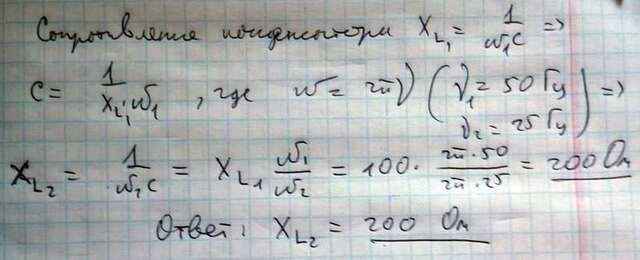 Сопротивление конденсатора X_L₁ = 1/(ω₁C) =>
C = 1/(X_L₁ω₁), где ω = 2πν (ν₁ = 50 Гц
ν₂ = 25 Гц) =>
X_L₂ = 1/(ω₂C) = X_L₁ ω₁/ω₂ = 100 · (2π·50)/(2π·25) = 200 Ом
Ответ: X_L₂ = 200 Ом